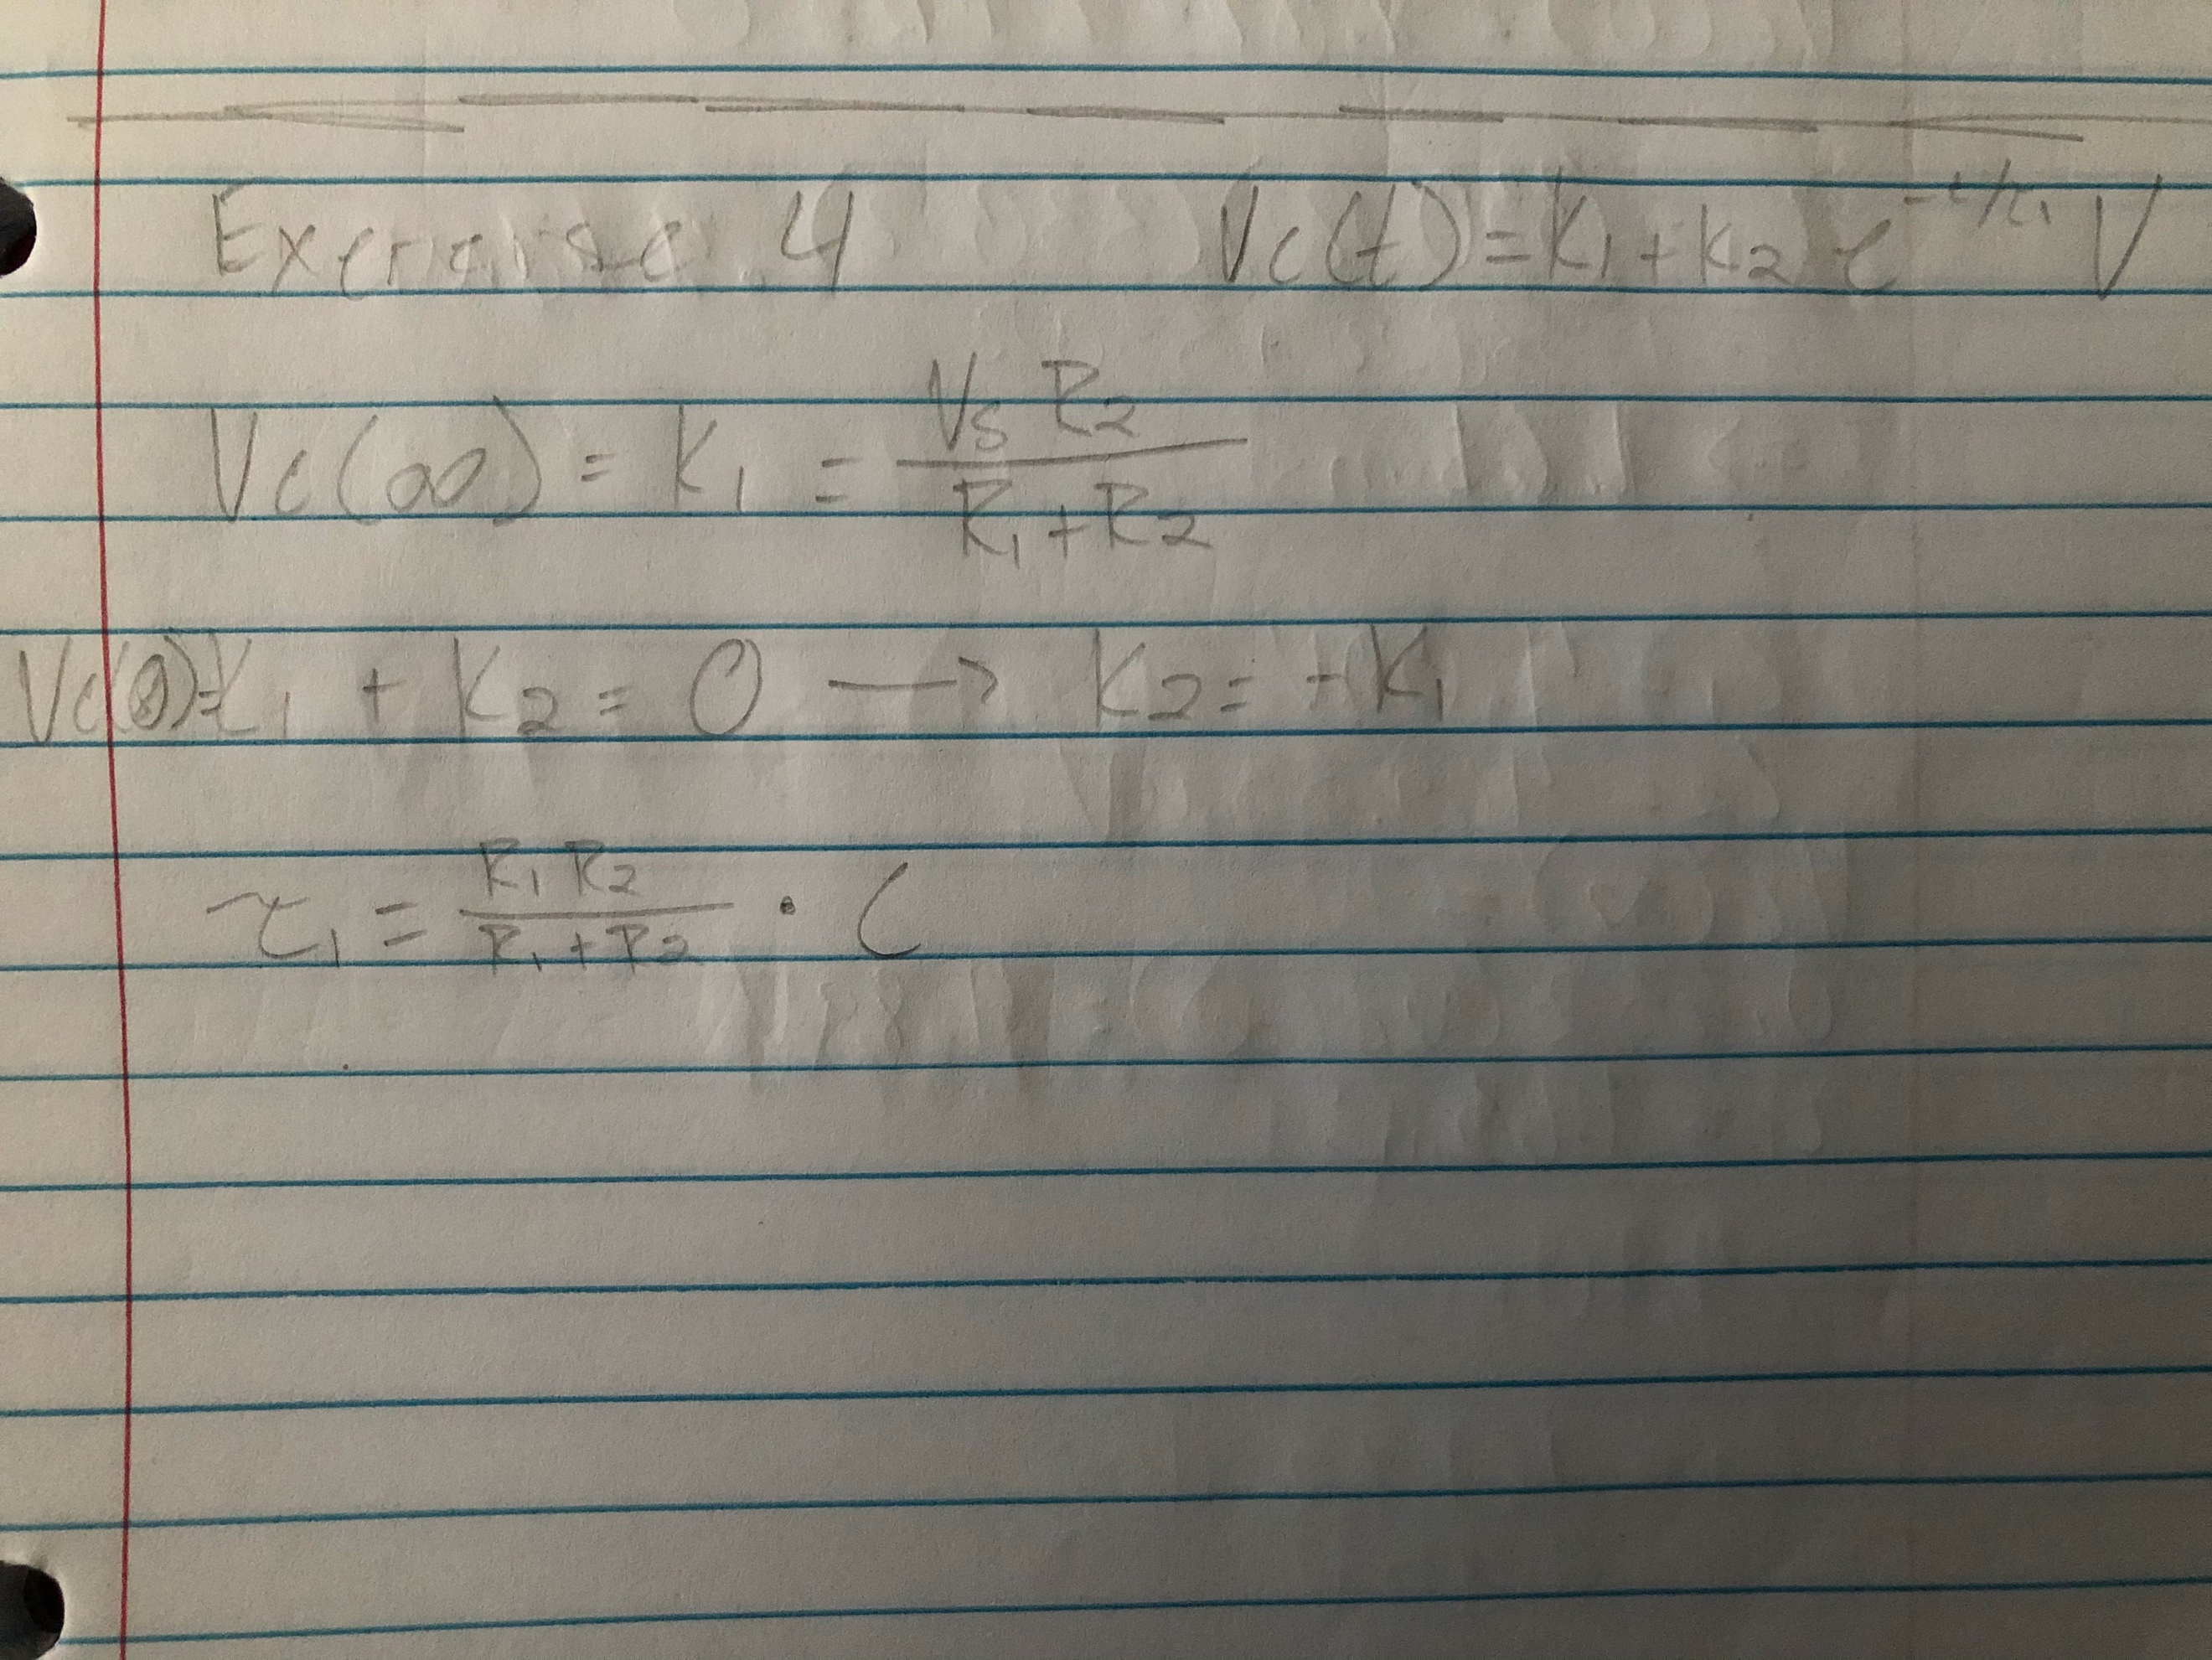 Exercise 4 Vc(t) = K1 + K2 e^-t/τ1 V
Vc(∞) = K1 = Vs R2 / R1 + R2
Vc(0) = K1 + K2 = 0 → K2 = -K1
τ1 = R1 R2 / R1 + R2 · C